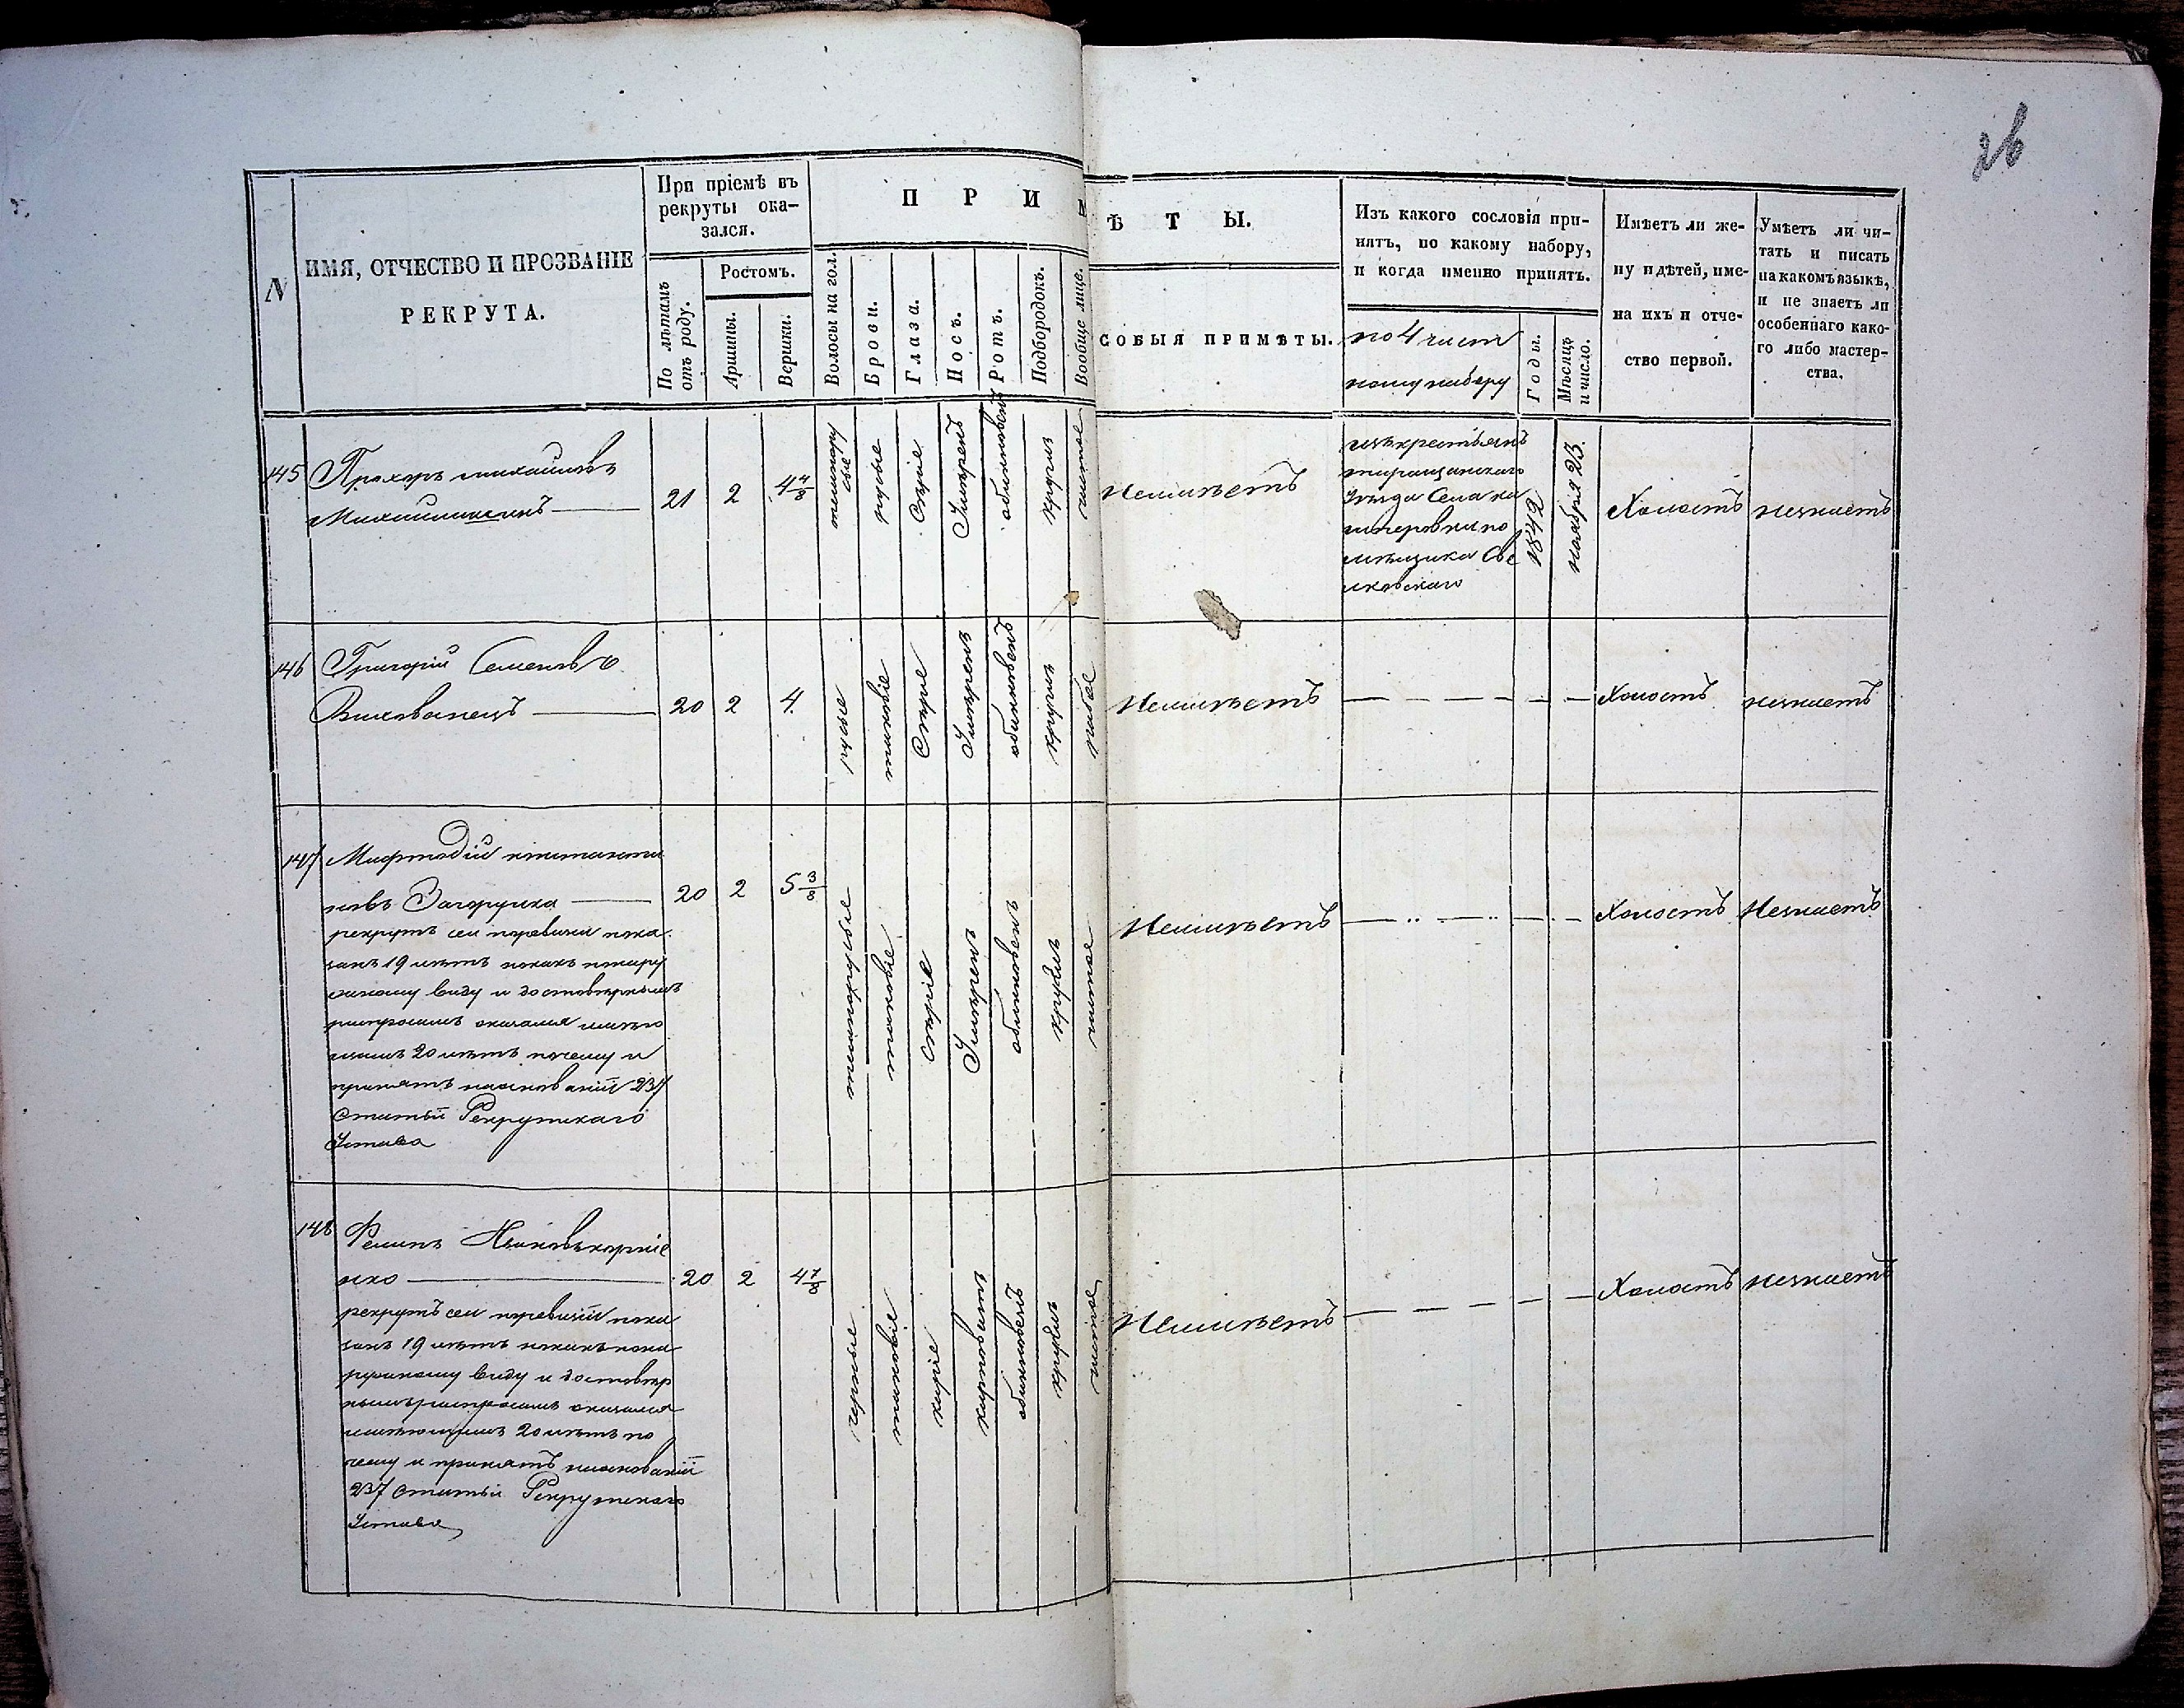 26
N
ИМЯ, ОТЧЕСТВО И ПРОЗВАНІЕ
РЕКРУТА.
При пріемѣ въ
рекруты ока-
зался.
По лѣтамъ
отъ роду.
Ростомъ.
Аршины.
Вершки.
П Р И М
Ѣ Т Ы.
Волосы на гол.
Брови.
Глаза.
Носъ.
Ротъ.
Подбородокъ.
Вообще лице.
СОБЫЯ ПРИМѢТЫ.
Изъ какого сословія при-
нятъ, по какому набору,
и когда именно принятъ.
по 4 част
ному набору
Годы.
Мѣсяцъ
и число.
Имѣетъ ли же-
ну и дѣтей, име-
на ихъ и отче-
ство первой.
Умѣетъ ли чи-
тать и писать
на какомъ языкѣ,
и не знаетъ ли
особеннаго како-
го либо мастер-
ства.
145
Прохоръ Михайловъ
21
2
4 4/8
темнору
сые
русые
Сѣрые
Умѣренъ
обыкновенъ
круглъ
чистое
Неимѣетъ
изъ крестьянъ
таращанскаго
Уѣзда Села
помѣщика
1849
ноября 23.
Холостъ
незнаетъ
146
Григорій Семеновъ
Вихованецъ
20
2
4
русые
таковіе
Сѣрые
Умѣренъ
обыкновенъ
круглъ
Неимѣетъ
Холостъ
незнаетъ
147
Мефтодій константи
новъ Загоруйка
20
2
5 3/8
рекрутъ сей поревизіи пока
занъ 19 лѣтъ но какъ понару
жному виду и достовѣрнымъ
распросамъ оказался имѣю
щимъ 20 лѣтъ почему и
принятъ наоснованіи 237
Статьи Рекрутскаго
Устава
темнорусые
таковіе
сѣріе
Умѣренъ
обыкновенъ
круглъ
чистое
Неимѣетъ
Холостъ
Незнаетъ
148
нко
20
2
4 7/8
рекрутъ сей поревизіи пока
занъ 19 лѣтъ но какъ пона
ружному виду и достовѣр
нымъ распросамъ оказался
имѣющимъ 20 лѣтъ по
чему и принятъ наоснованіи
237 Статьи Рекрутскаго
Устава
черные
таковіе
каріе
обыкновенъ
круглъ
чистое
Неимѣетъ
Холостъ
незнаетъ